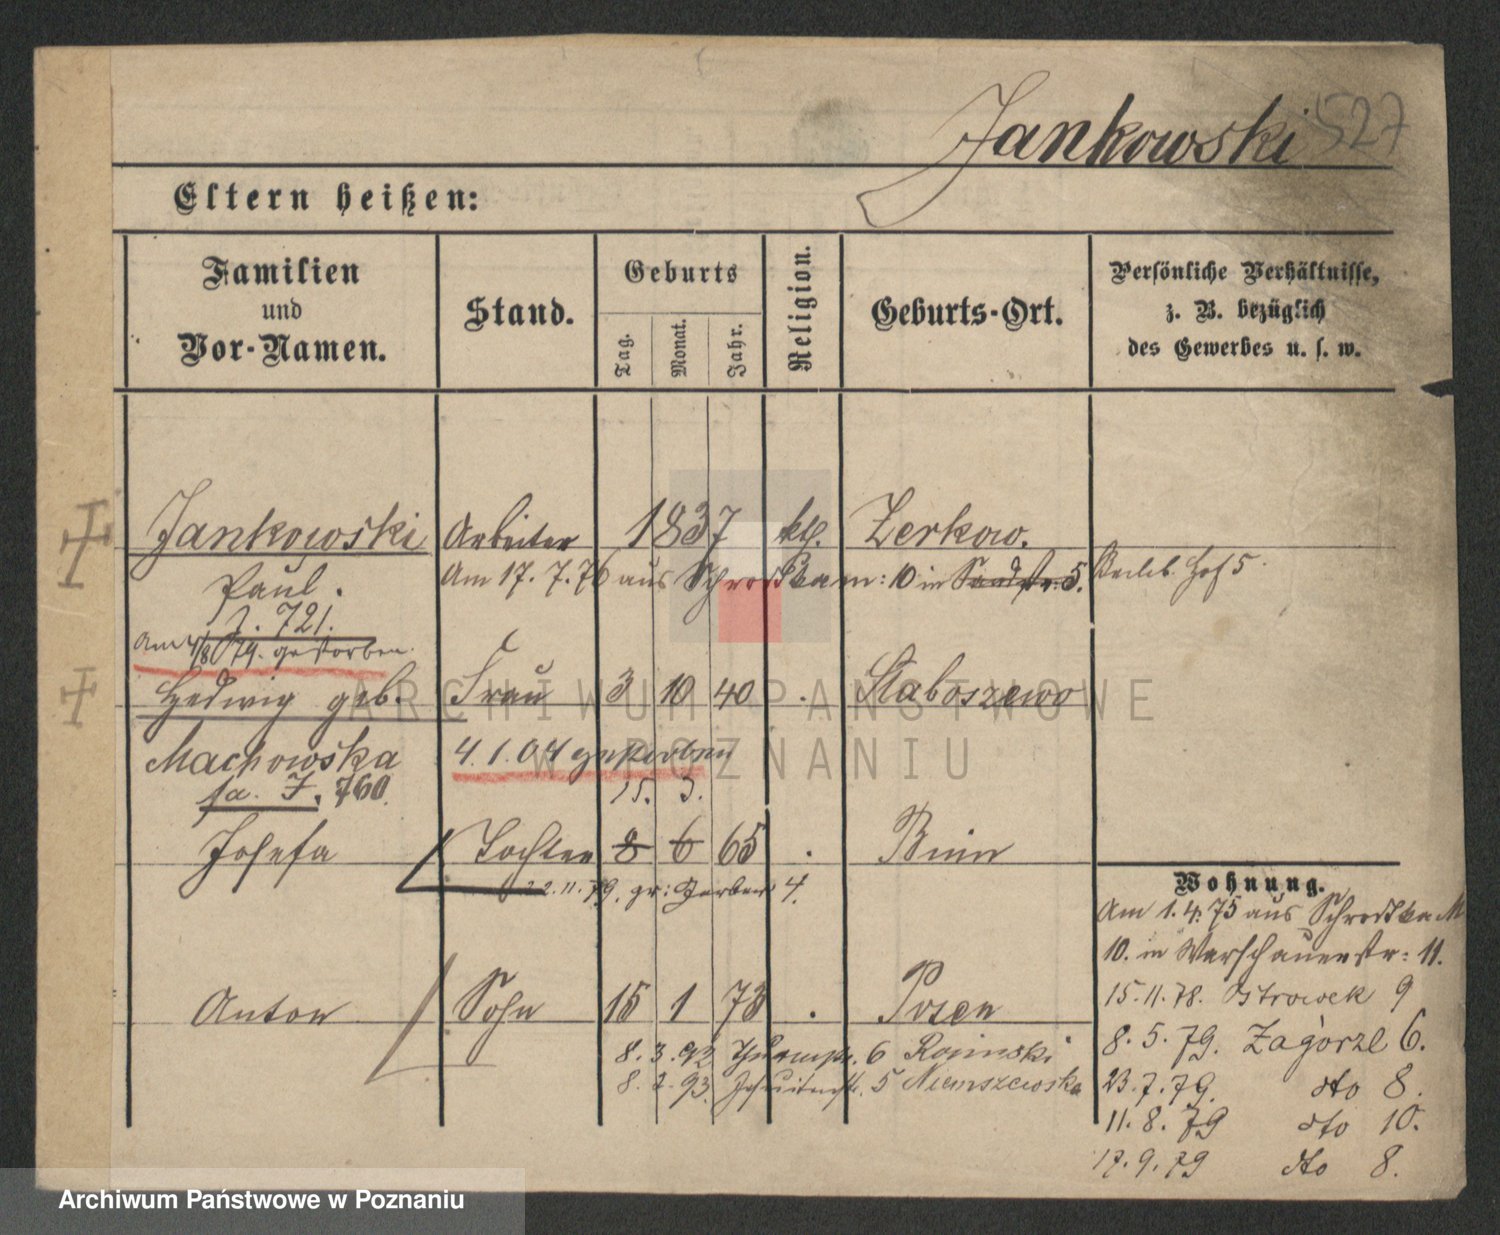 Jankowski
527
Eltern heißen:
Familien
und
Vor-Namen.
Stand.
Geburts
Tag.
Monat.
Jahr.
Religion.
Geburts-Ort.
Persönliche Verhältnisse,
z. B. bezüglich
des Gewerbes u. s. w.
Jankowski Arbeiter 1837 kth. Zerkow.
Paul. Am 17. 7. 76 aus Schrodka m: 10 in Sandstr. 5. Hof 5
J. 721.
Am 4/8 79. gestorben.
Hedwig geb. Frau 3 10 40 . Slaboszewo
Machowska 4. 1. 04 gestorben
fa. J. 760. 15. 3.
Josefa Tochter 8 6 65 . Bnin
22. 11. 79. gr: Gerber 4.
Wohnung.
Am 1. 4. 75 aus Schrodka M
10. in Warschauerstr: 11.
Anton Sohn 15 1 73 . Posen
15. 11. 78. Ostrowek 9
8. 3. 92 6
8. 2. 93. Jesuitenstr. 5 Niemszewska
8. 5. 79. Zagórze 6.
23. 7. 79. dto 8.
11. 8. 79 dto 10.
17. 9. 79 dto 8.
ARCHIWUM PAŃSTWOWE
W POZNANIU
Archiwum Państwowe w Poznaniu